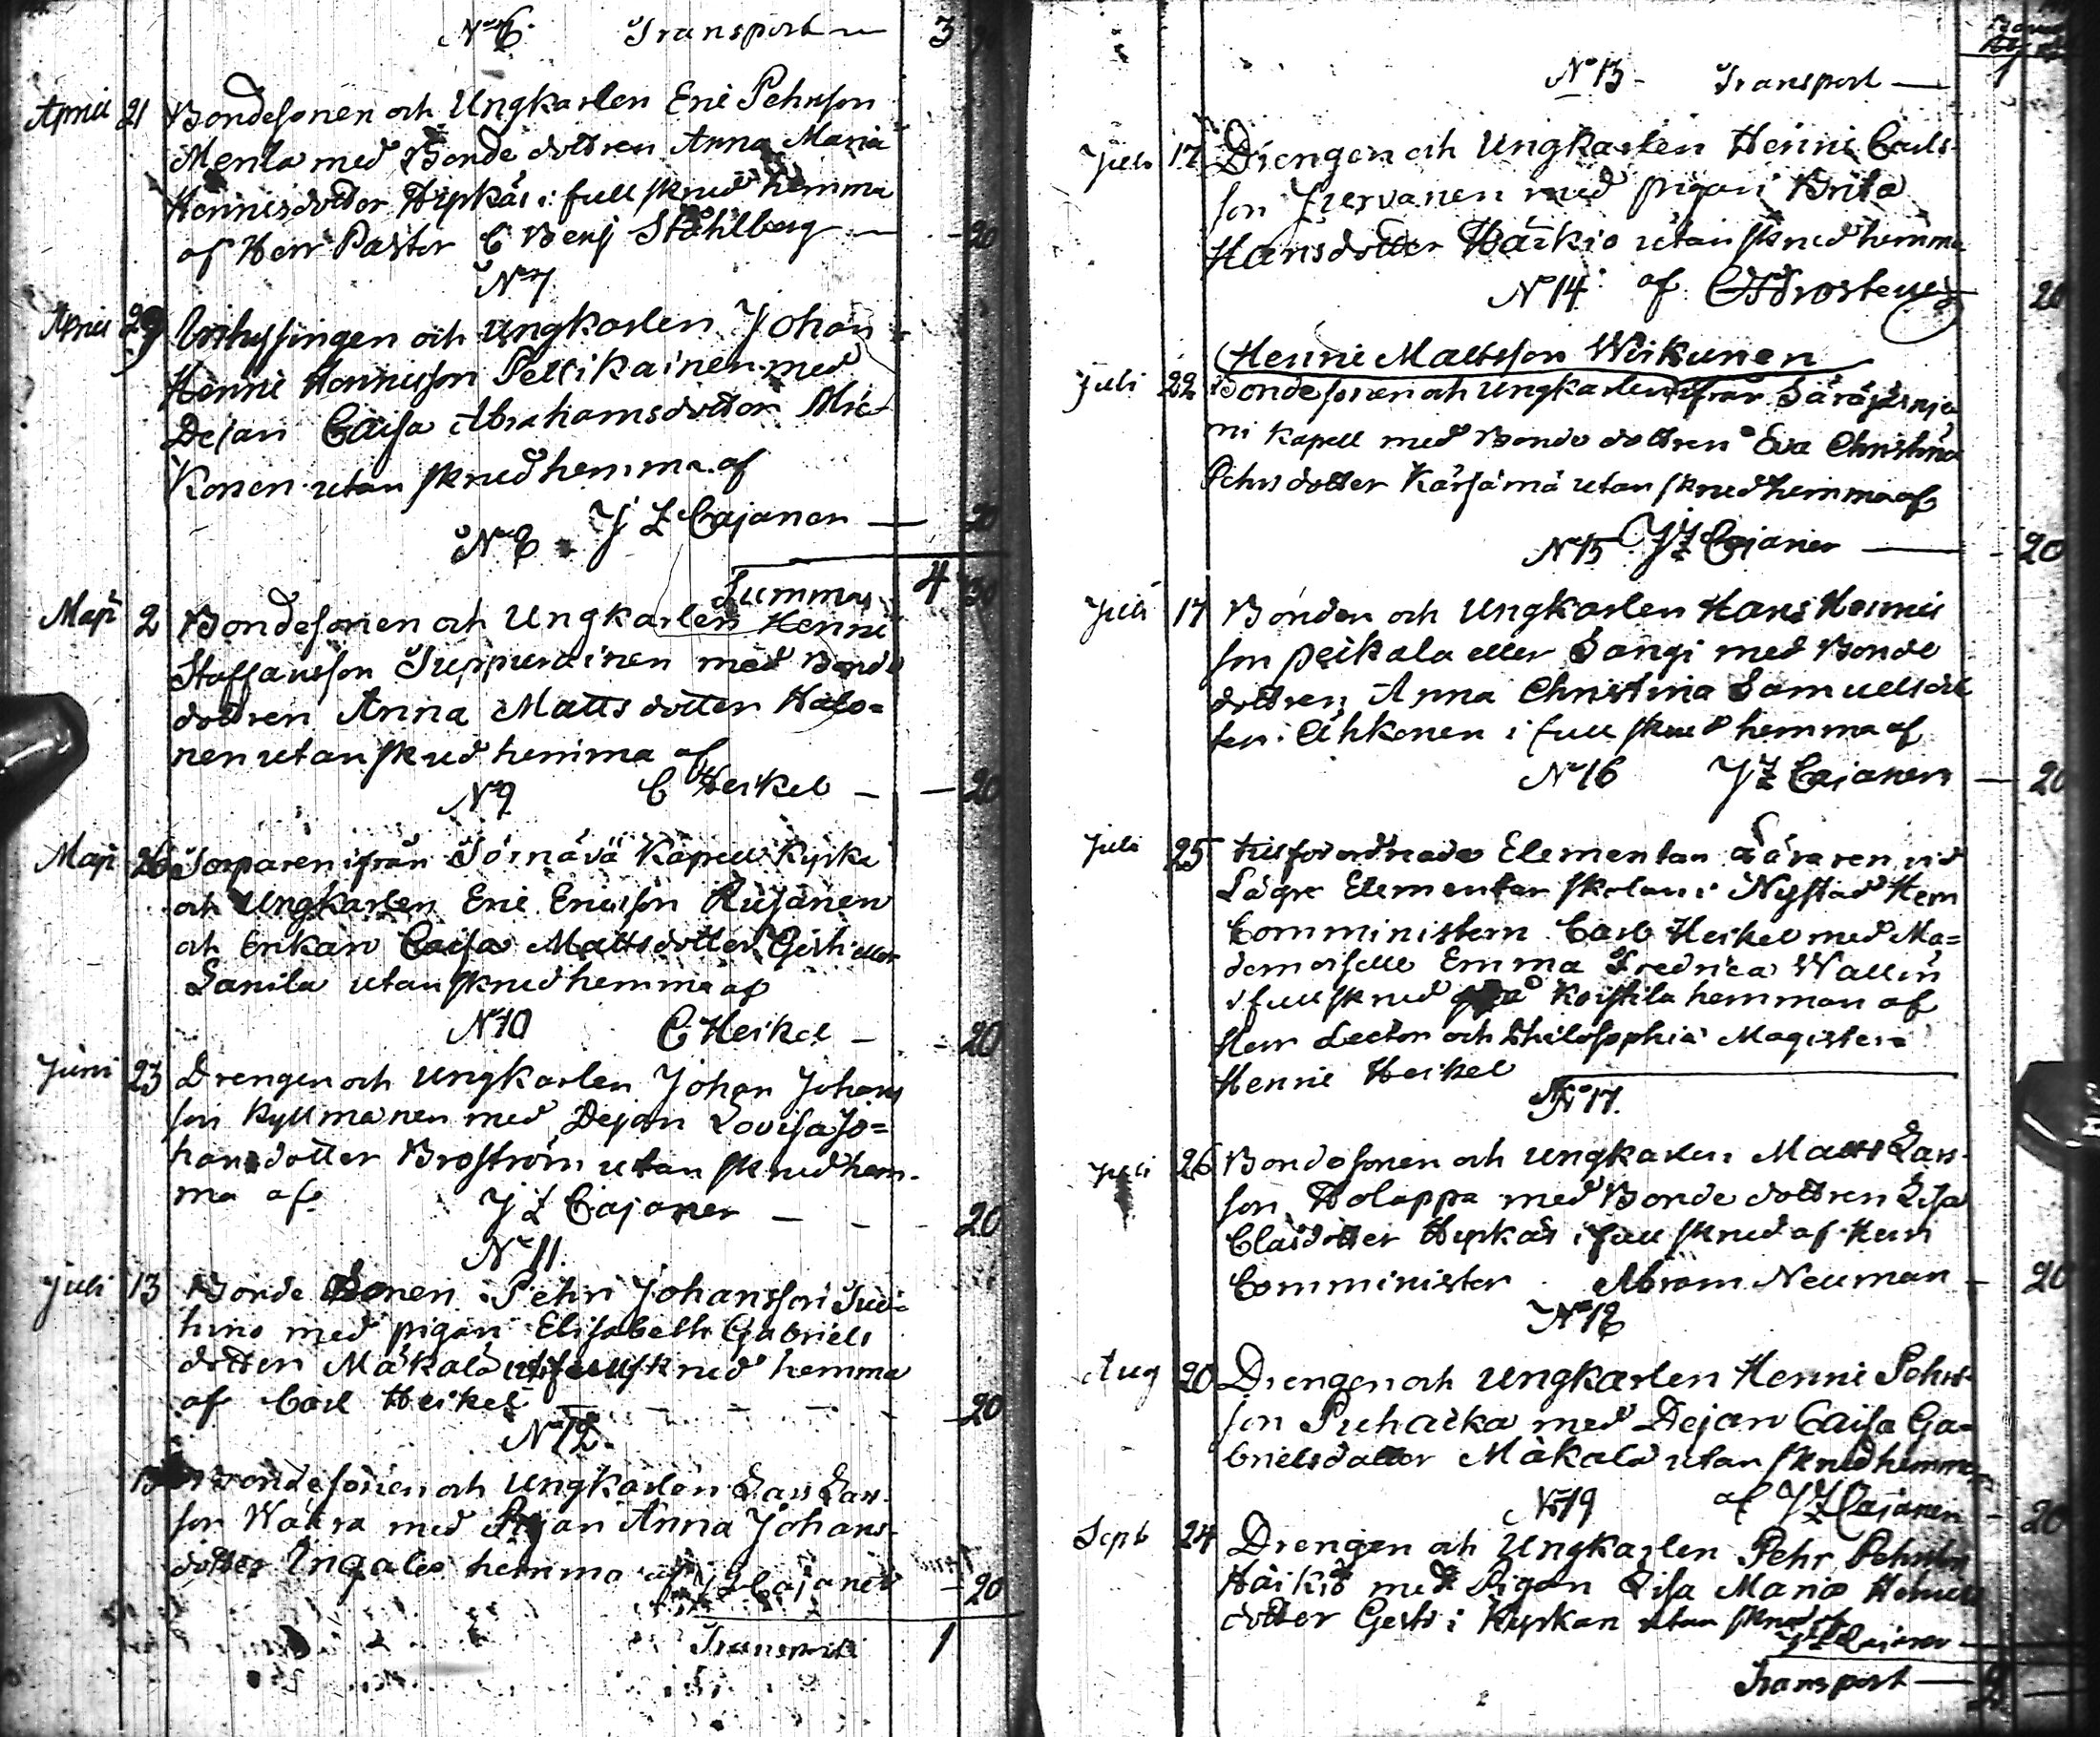 No 6. Transport — 3
April 21 Bondesonen och Ungkarlen Eric Pehrsson
Menla med Bonde dottren Anna Maria
Henricsdotter Hyrkäs i full skrud hemma
af Herr Pastor C Benj Ståhlberg — 20
No 7
April 29 Inhysingen och Ungkarlen Johan
Henric Henricsson Pellikainen med
Dejan Caisa Abrahamsdotter Mic-
konen utan skrud hemma af
J Z Cajaner — 20
No 8
Summa 4
Maji 2 Bondesonen och Ungkarlen Henric
Staffansson Juppurainen med Bonde
dottren Anna Matts dotter Halo=
nen utan skrud hemma af
C Heikel — 20
No 9
Maji 26 Torparen ifrån Sörnävä Kapell Kyrka
och Ungkarlen Eric Ericsson Risanen
och Enkan Caisa Mattsdotter Gerts eller
Lanila utan skrud hemma af
No 10 C Heikel — 20
Juni 23 Drengen och Ungkarlen Johan Johans
son Kyllmänen med Dejan Lovisa Jo=
hansdotter Broström utan skrud hem-
ma af J Z Cajaner — 20
No 11.
Juli 13 Bonde Sonen Pehr Johansson Juu=
huno med pigan Elisabeth Gabriels
dotter Mäkälä i full skrud hemma
af Carl Heikel — 20
No 12.
13 Bondesonen och Ungkarlen Lars Lars-
son Waara med Pigan Anna Johans-
dotter Ingalo hemma af J Z Cajaner — 20
Transport 1
No 13 - Transport — 1
Juli 17 Drengen och Ungkarlen Henric Carls-
son Juervanen med pigan Brita
Hansdotter Härkiö utan skrud hemma
No 14 af 20
Henric Mattsson Wirkunen
Juli 22 Bondesonen och Ungkarlen ifrån Säräisnie
mi Kapell med Bonde dottren Eva Christina
Pehrsdotter Kärsämä utan skrud hemma af
No 15 J Z Cajaner — 20
Juli 17 Bonden och Ungkarlen Hans Henrics
son Peikala eller Sangi med Bonde
dottren Anna Christina Samuelsdot
ter Ahkonen i full skrud hemma af
No 16 J Z Cajaner — 20
Juli 25 tillförordnade Elementar Läraren vid
Lägre Elementar skolan i Nystad Herr
Comministern Carl Heikel med Ma=
demoiselle Emma Fredrica Wallin
i full skrud på Koistila hemman af
Herr Lector och Philosophiæ Magister
Henric Heikel
No 17.
Juli 26 Bondesonen och Ungkarlen Matts Lars-
son Holappa med Bonde dottren Lisa
Clasdotter Hyrkäs i full skrud af Herr
Comminister Abram Neuman — 20
No 18
Aug 20 Drengen och Ungkarlen Henric Pehrs-
son Puhacka med Dejan Caisa Ga=
brielsdotter Mäkälä utan skrud hemma
No 19 af J Z Cajaner — 20
Sept 24 Drengen och Ungkarlen Pehr Pehrsson
Häikiö med Pigan Lisa Maria Henrics
dotter Gerts i Kyrkan utan skrud af
J Z Cajaner —
Transport — 2